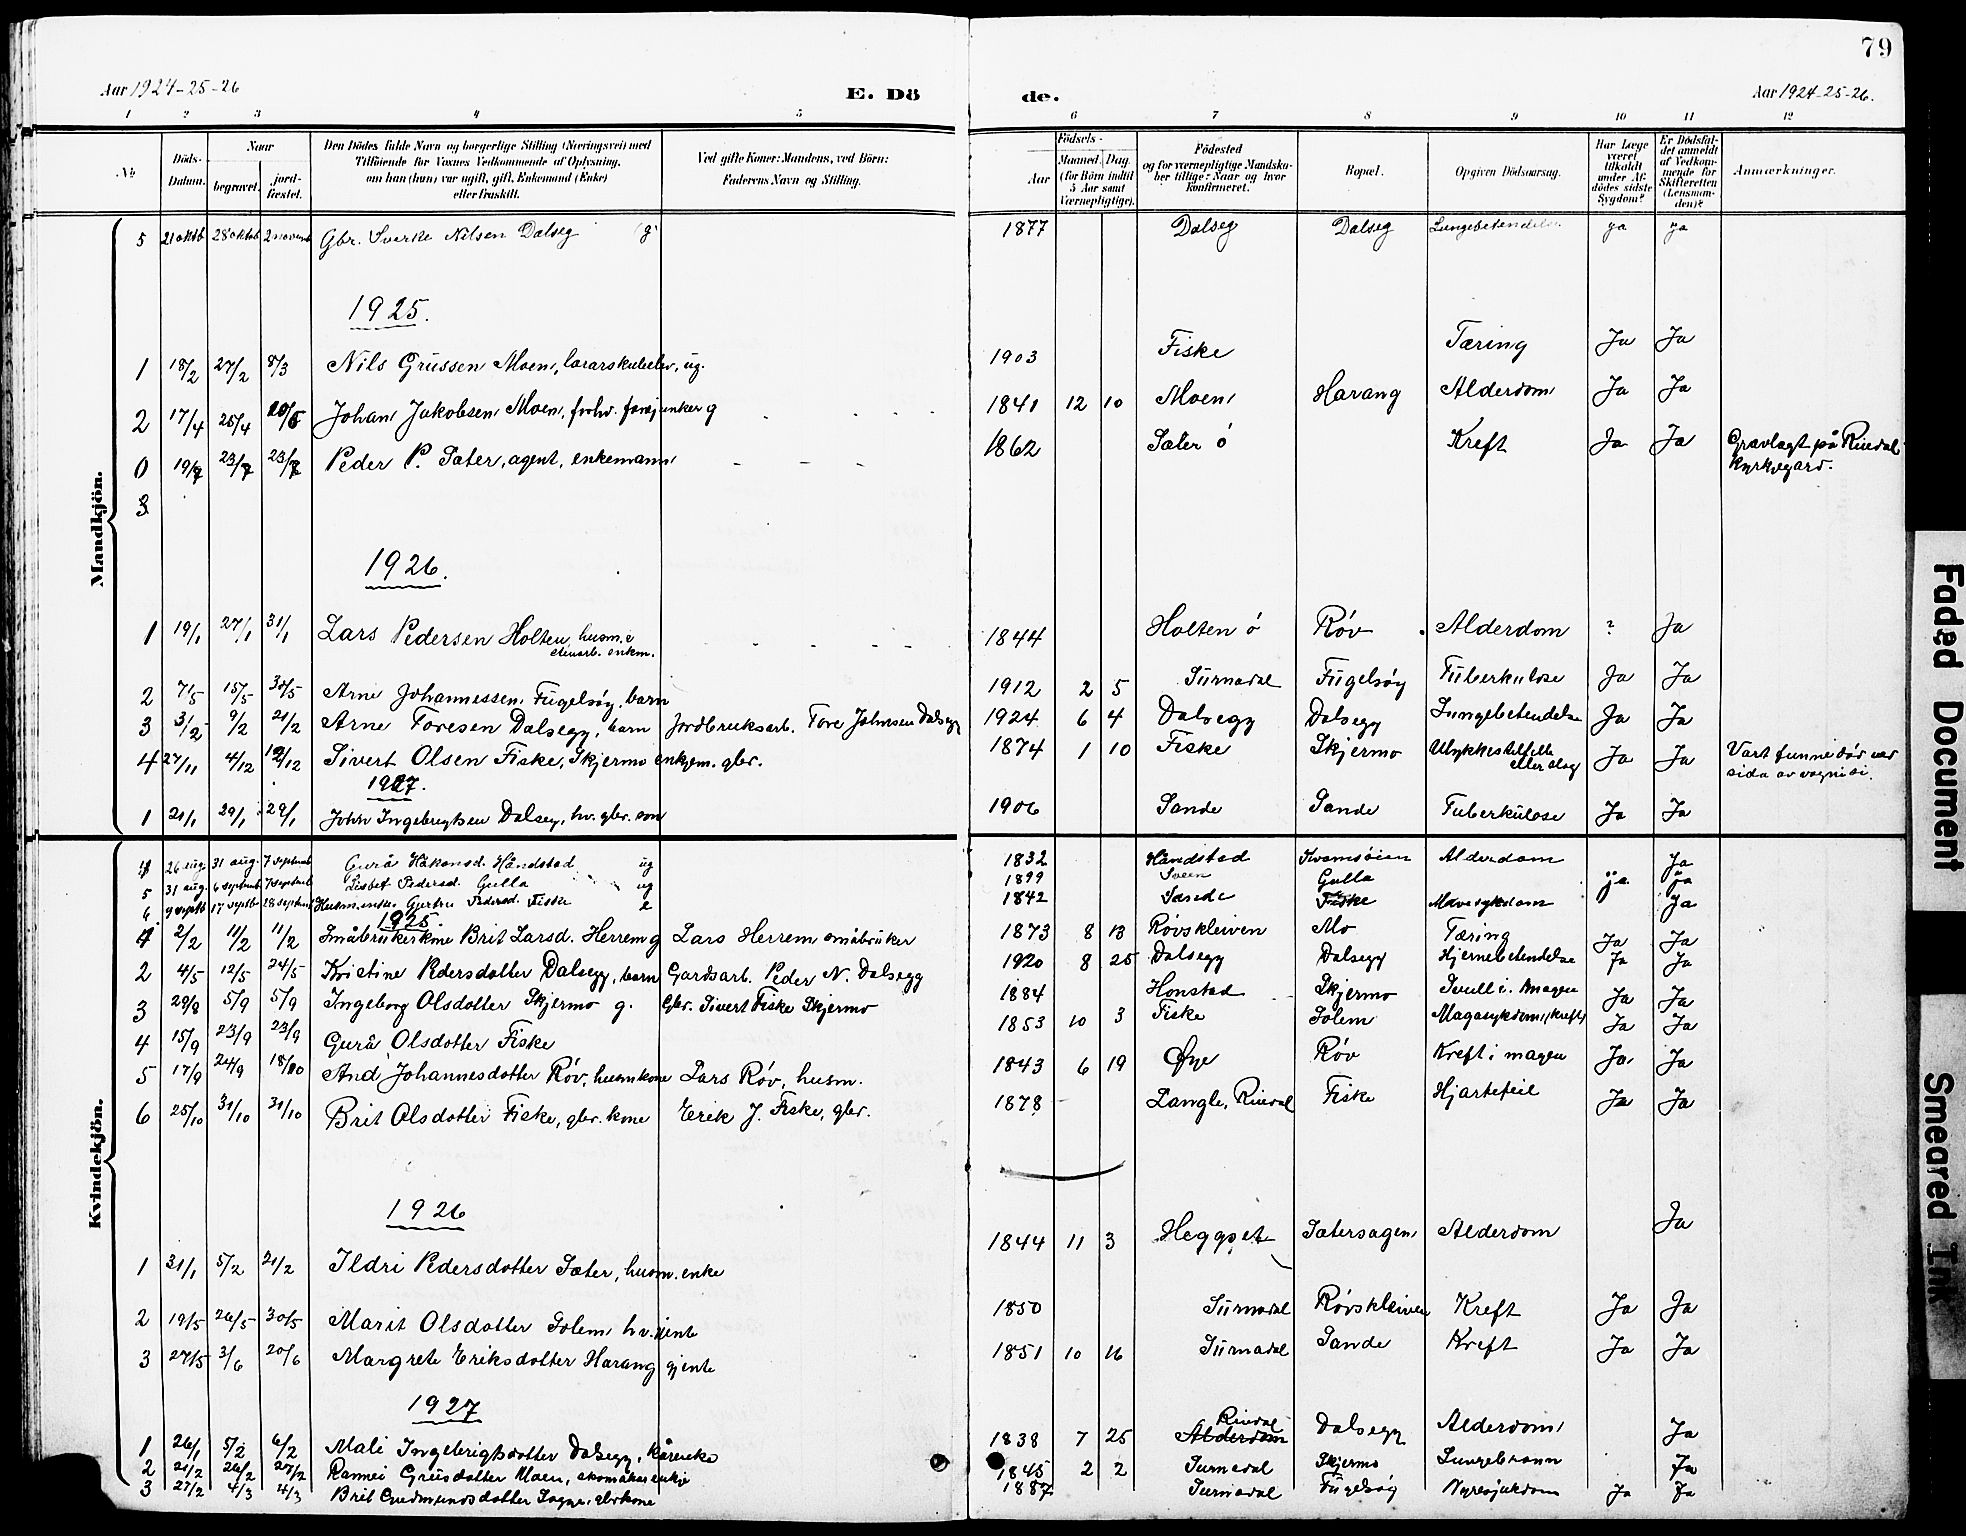 79
Aar 1924-25-26
E. Dö de.
Aar 1924-25-26.
1 2 3 4 5 6 7 8 9 10 11 12
No
Döds-Datum.
Naar begravet.
jord-fæstet.
Den Dödes fulde Navn og borgerlige Stilling (Næringsvei) med Tilföiende for Voxnes Vedkommende af Oplysning, om han (hun) var ugift, gift, Enkemand (Enke) eller fraskilt.
Ved gifte Koner: Mandens, ved Börn: Faderens Navn og Stilling.
Födsels-
Aar
Maaned. Dag. (for Börn indtil 5 Aar samt Værnepligtige).
Födested og for værnepligtige Mandskaber tillige: Naar og hvor Konfirmeret.
Bopæl.
Opgiven Dödsaarsag.
Har Læge været tilkaldt under Afdödes sidste Sygdom?
Er Dödsfaldet anmeldt af Vedkommende for Skifteretten (Lensmanden)?
Anmærkninger.
Mandkjön.
5 21 oktb 28 oktob 2 novemb Gbr. Sverke Nilsen Dalseg g 1877 Dalseg Dalseg Lungebetendelse ja ja
1925.
1 18/2 27/2 8/3 Nils Grussen Moen, lærarskuleelev, ug. 1903 Fiske Tæring Ja Ja
2 17/4 25/4 Johan Jakobsen Moen, g 1841 12 10 Moen Harang Alderdom Ja Ja
0 19/7 23/7 23/7 Peder P. Sæter, agent, enkemann 1862 Sæter ó Kreft Ja Ja Gravlagt på Rindal kyrkjegard.
3
1926.
1 19/1 27/1 31/1 Lars Pedersen Holten, husm. enkm. 1844 Holten ó Røv Alderdom ? Ja
2 7/5 15/5 30/5 Arne Johannessen Fugelsøy, barn 1912 2 5 Surnadal Fugelsøy Tuberkulose Ja Ja
3 3/2 9/2 21/2 Arne Toresen Dalsegg, barn Jordbruksarb. Tore Johnsen Dalsegg 1924 6 4 Dalsegg Dalsegg Lungebetendelse Ja Ja
4 27/11 4/12 12/12 Sivert Olsen Fiske, Skjermo enkjem. gbr. 1874 1 10 Fiske Skjermo Ulykkestilfelle eller slag Ja Ja Vart funne død ved sida av vogni si.
1927.
1 21/1 29/1 29/1 John Ingebrigtsen Dalseg, hv. gbr. son 1906 Sande Sande Tuberkulose Ja Ja
Kvindekjön.
4 26 aug. 31 aug. 7 septemb Gurå Håkonsd. Håndstad ug 1832 Håndstad Kvamsøien Alderdom Ja
5 31 aug. 6 septemb 7 septemb Lisbet Pedersd. Gulla ug 1899 Sveen Gulla ja ja
6 9 septb 17 septb 28 septemb Husm. enke Gjertru Pedersd. Fiske e 1842 Sande Fiske Mavesykdom Ja
1925.
1 2/2 11/2 11/2 Småbrukerkone Brit Larsd. Herrem g Lars Herrem småbruker 1873 8 13 Røvskleiven Mo Tæring Ja Ja
2 4/5 12/5 24/5 Kristine Pedersdotter Dalsegg, barn Gardsarb. Peder N. Dalsegg 1920 8 25 Dalsegg Dalsegg Hjernebetendelse Ja Ja
3 29/8 5/9 5/9 Ingeborg Olsdotter Skjermo g. Gbr. Sivert Fiske Skjermo 1884 Honstad Skjermo Svull i magen Ja Ja
4 15/9 23/9 23/9 Gurå Olsdotter Fiske 1853 10 3 Fiske Solem Magasykdom, (kreft) Ja Ja
5 17/9 24/9 18/10 And Johannesdotter Røv, husmkone Lars Røv, husm. 1843 6 19 Øye Røv Kreft i magen Ja Ja
6 25/10 31/10 31/10 Brit Olsdotter Fiske, gbr. kone Erik J. Fiske, gbr. 1878 Langle, Rindal Fiske Hjartefeil Ja Ja
1926
1 31/1 5/2 21/2 Ildri Pedersdotter Sæter, husm. enke 1844 11 3 Heggset Sætersagen Alderdom Ja
2 19/5 26/5 30/5 Marit Olsdotter Solem hv. jente 1850 Surnadal Røvskleiven Kreft Ja Ja
3 27/5 3/6 20/6 Margrete Eriksdotter Harang gjente 1851 10 16 Surnadal Sande Kreft Ja Ja
1927
1 26/1 5/2 6/2 Mali Ingebrigtsdotter Dalsegg, kårenke 1838 7 25 Rindal Alderdom Dalsegg Alderdom Ja
2 21/2 26/2 27/2 Rannei Grusdotter Moen, skomakarenkje 1845 2 2 Surnadal Skjermo Lungebrann Ja
3 27/2 4/3 4/3 Brit Gudmundsdotter gbrkone 1887 Surnadal Fugelsøy Nyresjukdom Ja Ja
Faded Document
Smeared Ink